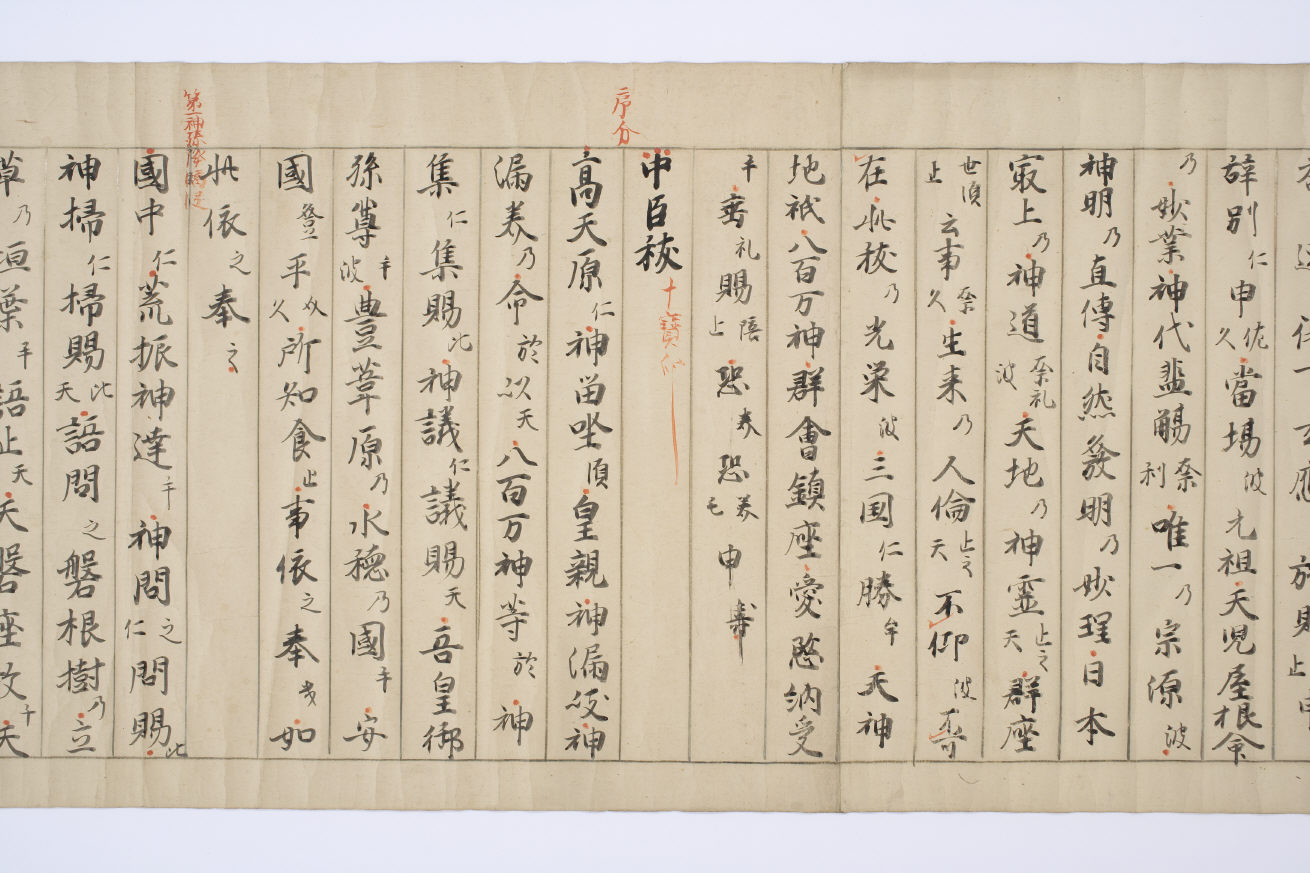 辞別仁申佐久當場波元祖天児屋根命
乃妙業神代盞觴奈利唯一乃宗源波
神明乃直傳自然發明乃妙理日本
最上乃神道奈礼波天地乃神霊止之天群座
世須止云事奈久生来乃人倫止之天不仰波
在此祓乃光栄波三国仁勝牟天神
地祇八百万神群會鎮座愛愍納受
乎垂礼賜陪止恐美恐美毛申壽
序分
中臣祓
高天原仁神留坐須皇親神漏岐神
漏美乃命於以天八百万神等於神
集仁集賜比神議仁議賜天吾皇御
孫尊乎波豊葦原乃水穂乃國乎安
國登平久所知食止事依之奉幾如
此依之奉之
國中仁荒振神達乎神問之問仁問賜比
神掃仁掃賜比天語問之磐根樹乃立
草乃垣葉乎語止天天磐座放千天